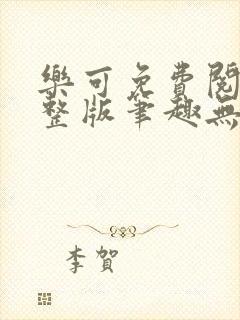 樂可免費閱
整版筆趣無
李賀